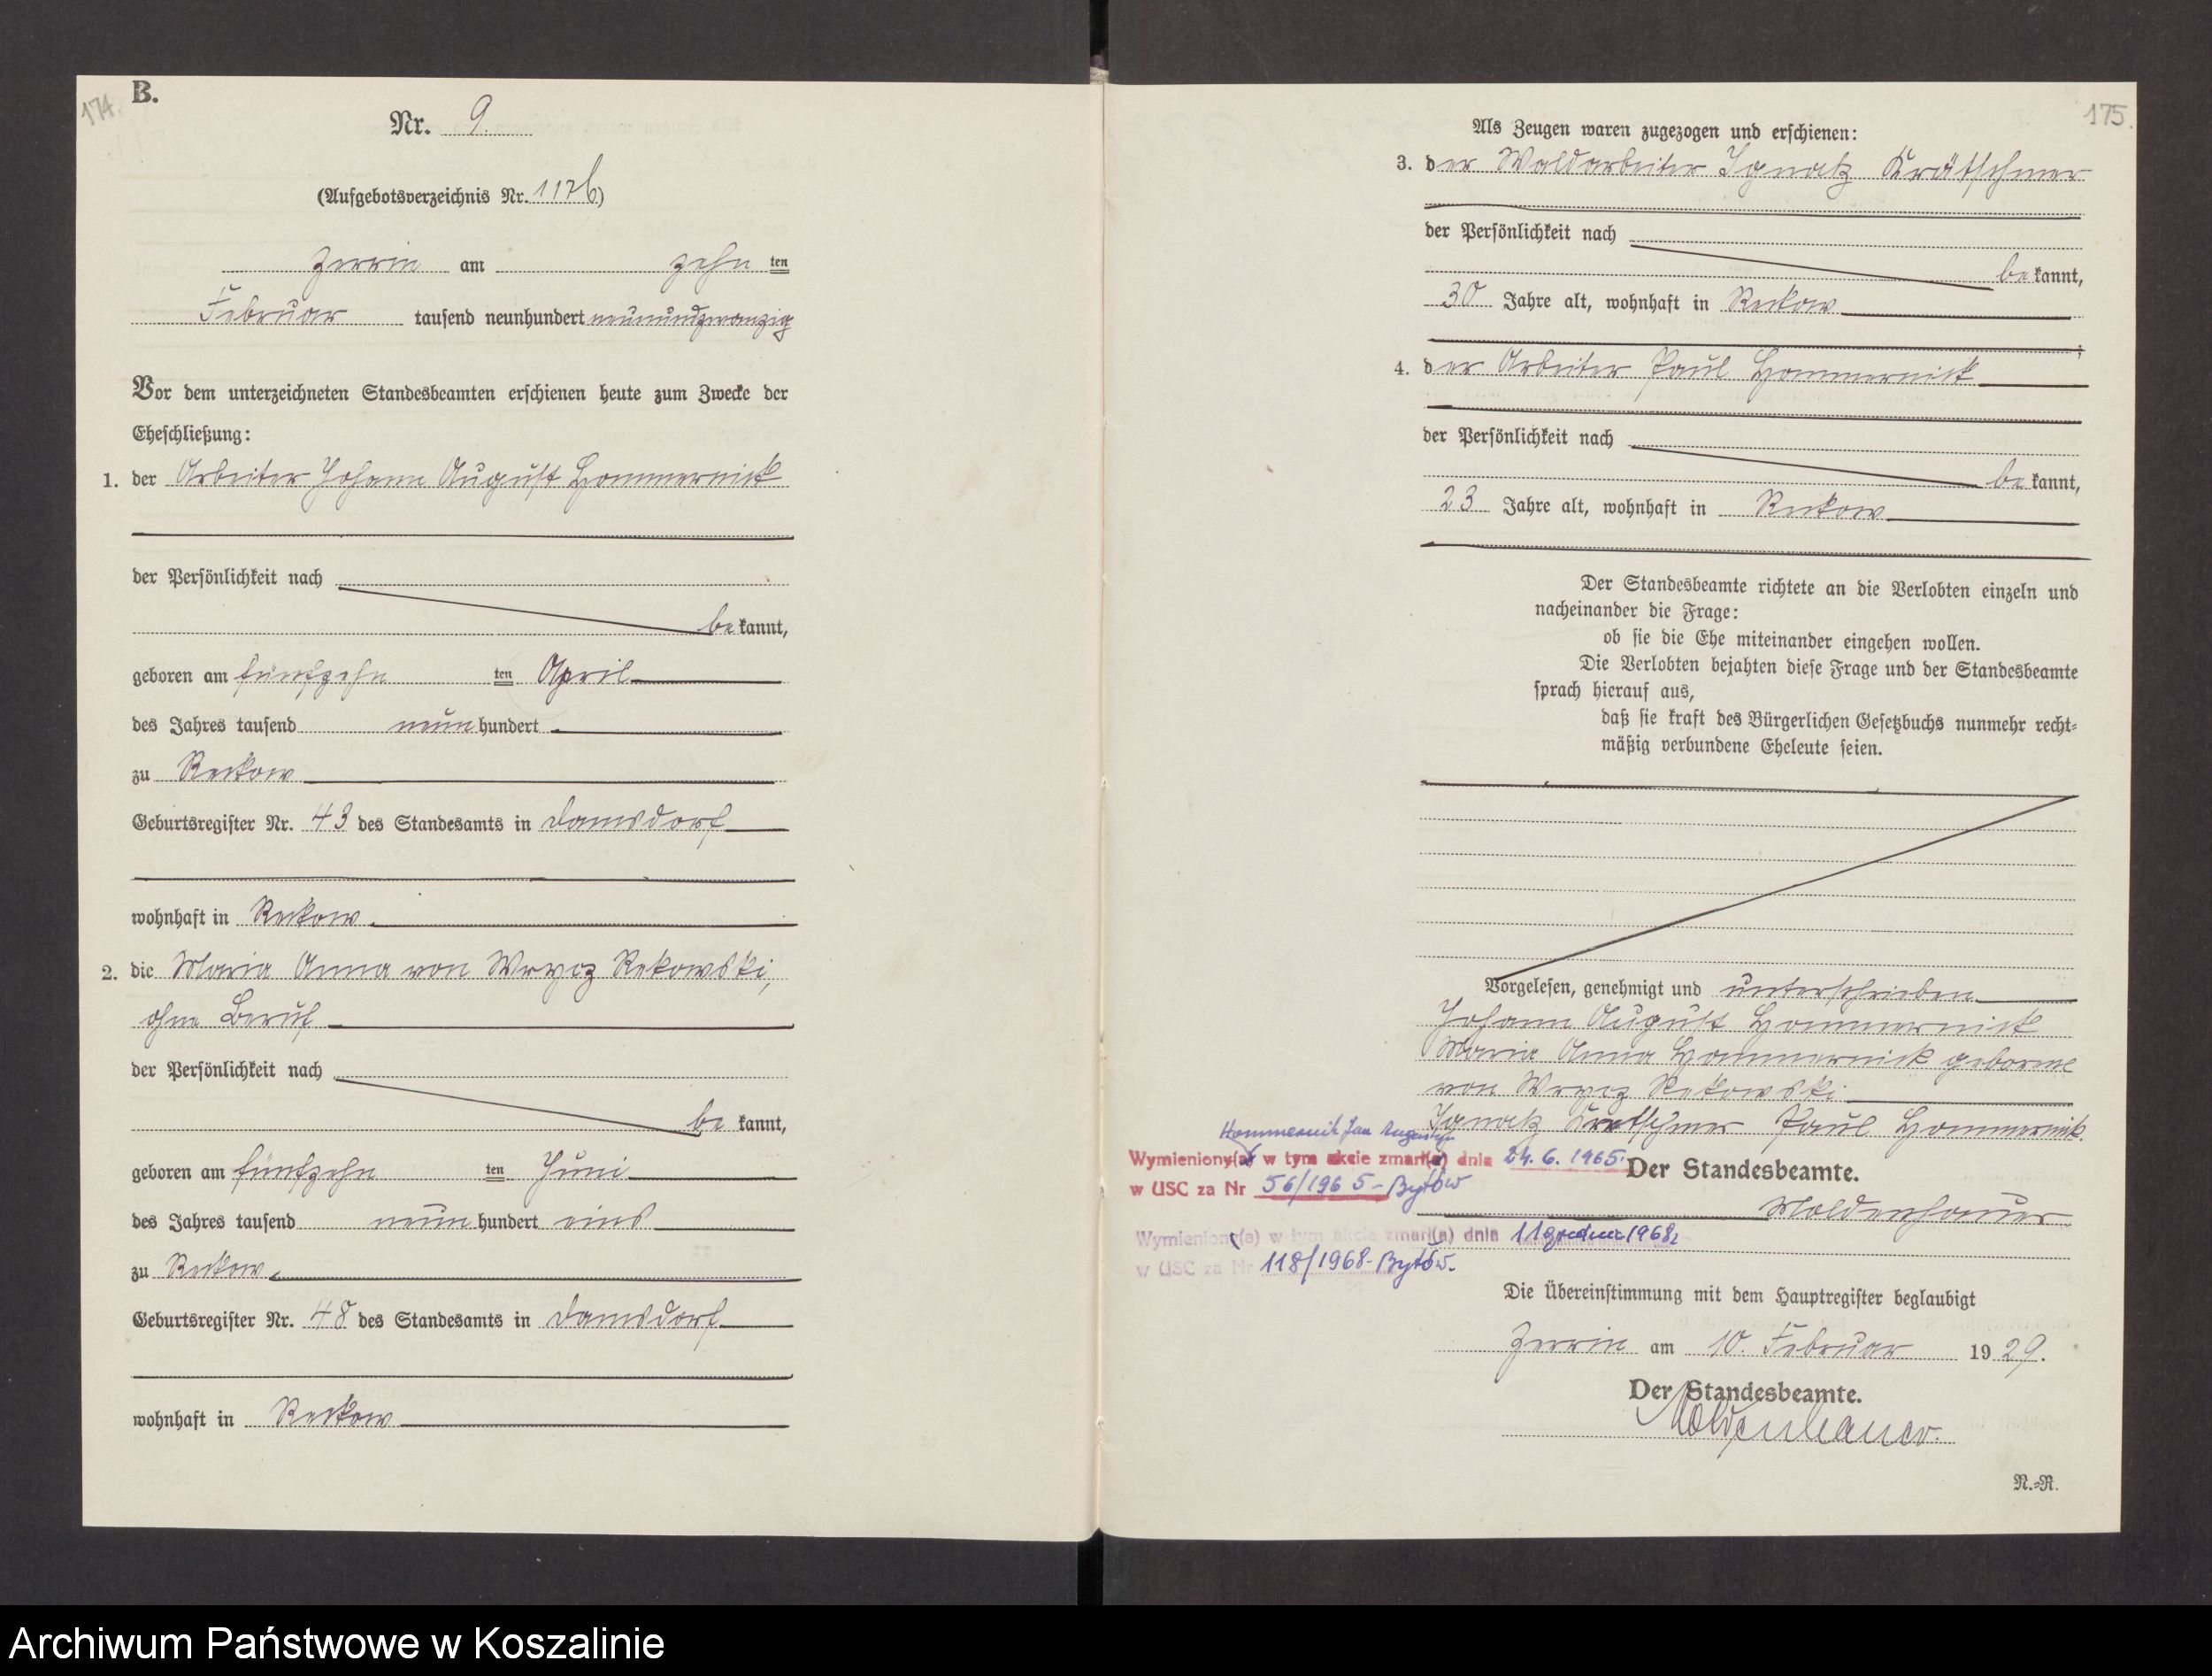 174.
B.
Nr. 9.
(Aufgebotsverzeichnis Nr. 1176)
Zerrin am zehn ten
Februar tausend neunhundert neunundzwanzig
Vor dem unterzeichneten Standesbeamten erschienen heute zum Zwecke der
Eheschließung:
1. der Arbeiter Johann August Hommernick
der Persönlichkeit nach
be kannt,
geboren am fünfzehn ten April
des Jahres tausend neun hundert
zu Reckow
Geburtsregister Nr. 43 des Standesamts in Damsdorf
wohnhaft in Reckow.
2. die Maria Anna von Wrycz Rekowski,
ohne Beruf
der Persönlichkeit nach
be kannt,
geboren am fünfzehn ten Juni
des Jahres tausend neun hundert eins
zu Reckow.
Geburtsregister Nr. 48 des Standesamts in Damsdorf
wohnhaft in Reckow
175.
Als Zeugen waren zugezogen und erschienen:
3. der Waldarbeiter Ignatz Krätschmer
der Persönlichkeit nach
be kannt,
30 Jahre alt, wohnhaft in Reckow
;
4. der Arbeiter Paul Hommernick
der Persönlichkeit nach
be kannt,
23 Jahre alt, wohnhaft in Reckow
Der Standesbeamte richtete an die Verlobten einzeln und
nacheinander die Frage:
ob sie die Ehe miteinander eingehen wollen.
Die Verlobten bejahten diese Frage und der Standesbeamte
sprach hierauf aus,
daß sie kraft des Bürgerlichen Gesetzbuchs nunmehr recht-
mäßig verbundene Eheleute seien.
Vorgelesen, genehmigt und unterschrieben
Johann August Hommernick
Maria Anna Hommernick geborene
von Wrycz Rekowski
Ignatz Kretschmer Paul Hommernick
Hommernik Jan Augustyn
Wymieniony(a) w tym akcie zmarł(a) dnia 24. 6. 1965.
w USC za Nr 56/1965 - Bytów
Der Standesbeamte.
Moldenhauer
Wymieniony(a) w tym akcie zmarł(a) dnia 11 grudnia 1968r
w USC za Nr 118/1968 - Bytów.
Die Übereinstimmung mit dem Hauptregister beglaubigt
Zerrin am 10. Februar 19 29.
Der Standesbeamte.
Moldenhauer.
N.-R.
Archiwum Państwowe w Koszalinie